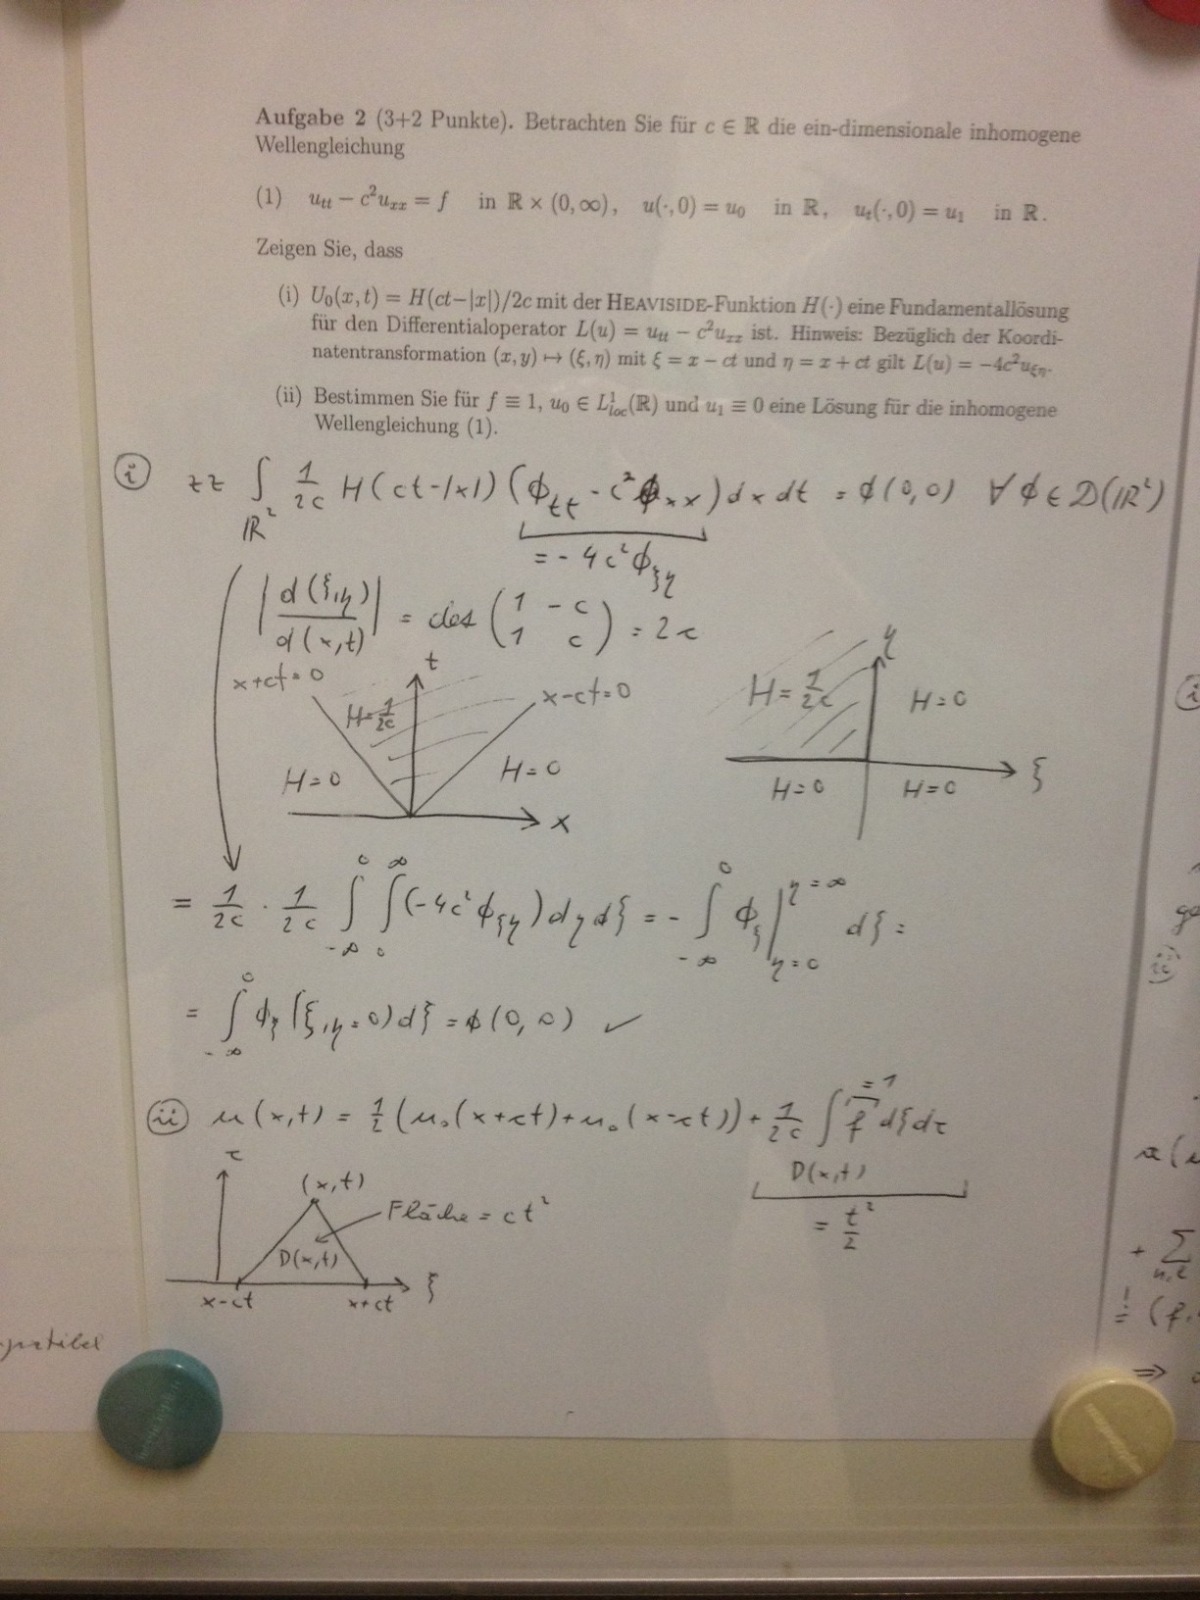 Aufgabe 2 (3+2 Punkte). Betrachten Sie für c ∈ ℝ die ein-dimensionale inhomogene
Wellengleichung
(1) u_tt − c²u_xx = f in ℝ × (0,∞), u(·,0) = u_0 in ℝ, u_t(·,0) = u_1 in ℝ.
Zeigen Sie, dass
(i) U_0(x,t) = H(ct−|x|)/2c mit der HEAVISIDE-Funktion H(·) eine Fundamentallösung
für den Differentialoperator L(u) = u_tt − c²u_xx ist. Hinweis: Bezüglich der Koordi-
natentransformation (x,y) ↦ (ξ,η) mit ξ = x − ct und η = x + ct gilt L(u) = −4c²u_ξη.
(ii) Bestimmen Sie für f ≡ 1, u_0 ∈ L¹_loc(ℝ) und u_1 ≡ 0 eine Lösung für die inhomogene
Wellengleichung (1).
(i) zz ∫_ℝ² 1/2c H(ct-|x|) (ϕ_tt - c²ϕ_xx) dx dt = ϕ(0,0) ∀ ϕ ∈ D(ℝ²)
= - 4c²ϕ_ξη
|d(ξ,η)/d(x,t)| = det (1 -c; 1 c) = 2c
x+ct=0
t
x-ct=0
H=1/2c
H=0
H=0
x
η
H=1/2c
H=0
H=0
H=0
ξ
= 1/2c · 1/2c ∫_-∞^0 ∫_0^∞ (-4c²ϕ_ξη) dη dξ = - ∫_-∞^0 ϕ_ξ |_η=0^η=∞ dξ =
= ∫_-∞^0 ϕ_ξ(ξ,η=0) dξ = ϕ(0,0) ✓
(ii) u(x,t) = 1/2 (u_0(x+ct)+u_0(x-ct)) + 1/2c ∫_D(x,t) f dξdτ
=1
= t²/2
τ
(x,t)
Fläche = ct²
D(x,t)
x-ct
x+ct
ξ
+ Σ
⇒